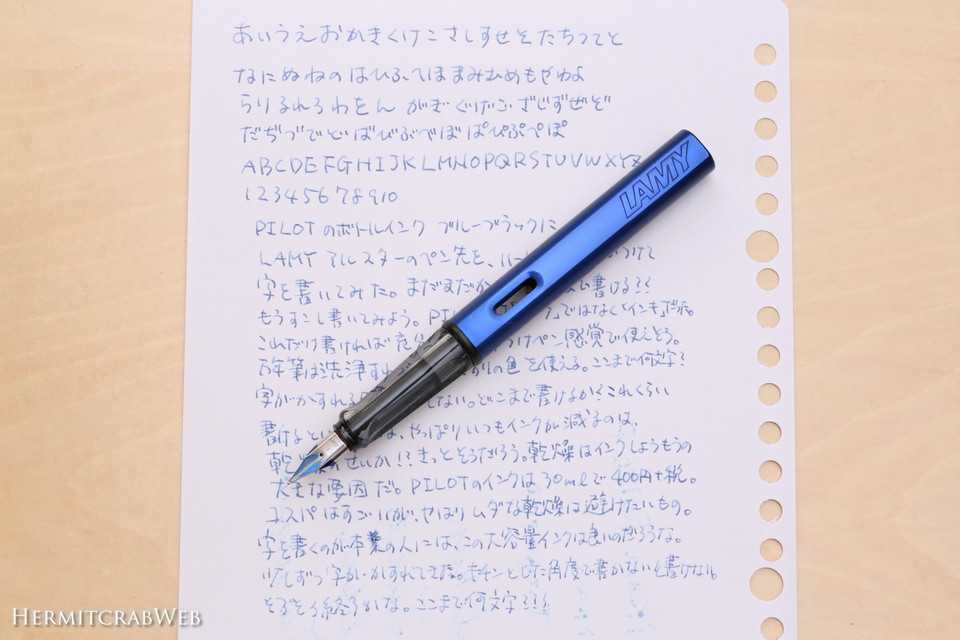 あいうえおかきくけこさしすせそたちつてと
なにぬねのはひふへほまみむめもやゆよ
らりるれろわをん がぎぐげござじずぜぞ
だぢづでどばびぶべぼぱぴぷぺぽ
ABCDEFGHIJKLMNOPQRSTUVWXYZ
12345678910
PILOTのボトルインク ブルーブラックに
LAMY アルスターのペン先を、 つけて
字を書いてみた。まだまだ 書ける!!
もうすこし書いてみよう。PIL ではなく「インキ」だった。
これだけ書ければ充分 つけペン感覚で使えそう。
万年筆は洗浄すれ の色を使える。ここまで何文字?
字がかすれる てない。どこまで書けるか!これくらい
書けると は、やっぱりいつもインクが減るのは、
乾燥のせいか!?きっとそうだろう。乾燥はインクしょうもうの
大きな要因だ。PILOTのインクは30mlで400円+税。
コスパはすごいが、やはりムダな乾燥は避けたいもの。
字を書くのが本業の人には、この大容量インクは良いのだろうな。
少しずつ字がかすれてきた。キチンとした角度で書かないと書けない。
そろそろ終りかな。ここまで何文字!!!
LAMY
HERMITCRABWEB